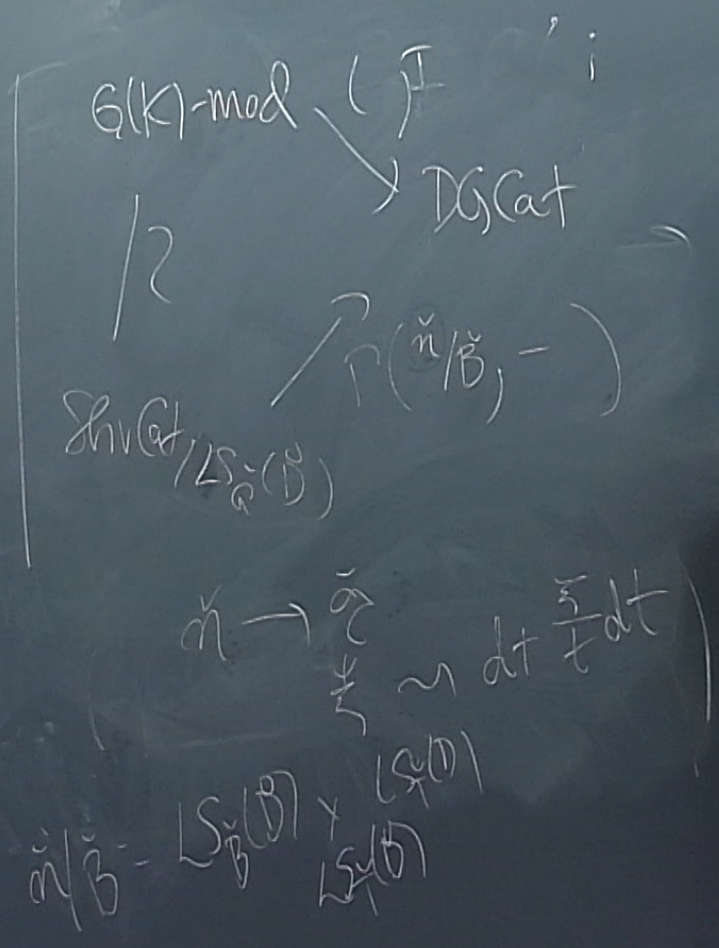 G(K)-mod ( )^I
DGCat
Γ(ň/B̌, -)
ShvCat/LS_Ǧ(D̊)
ň → ǧ
ξ ~ d + ξ/t dt
ň/B̌ = LS_B̌(D̊) × LS_Ť(D)
LS_Ť(D̊)